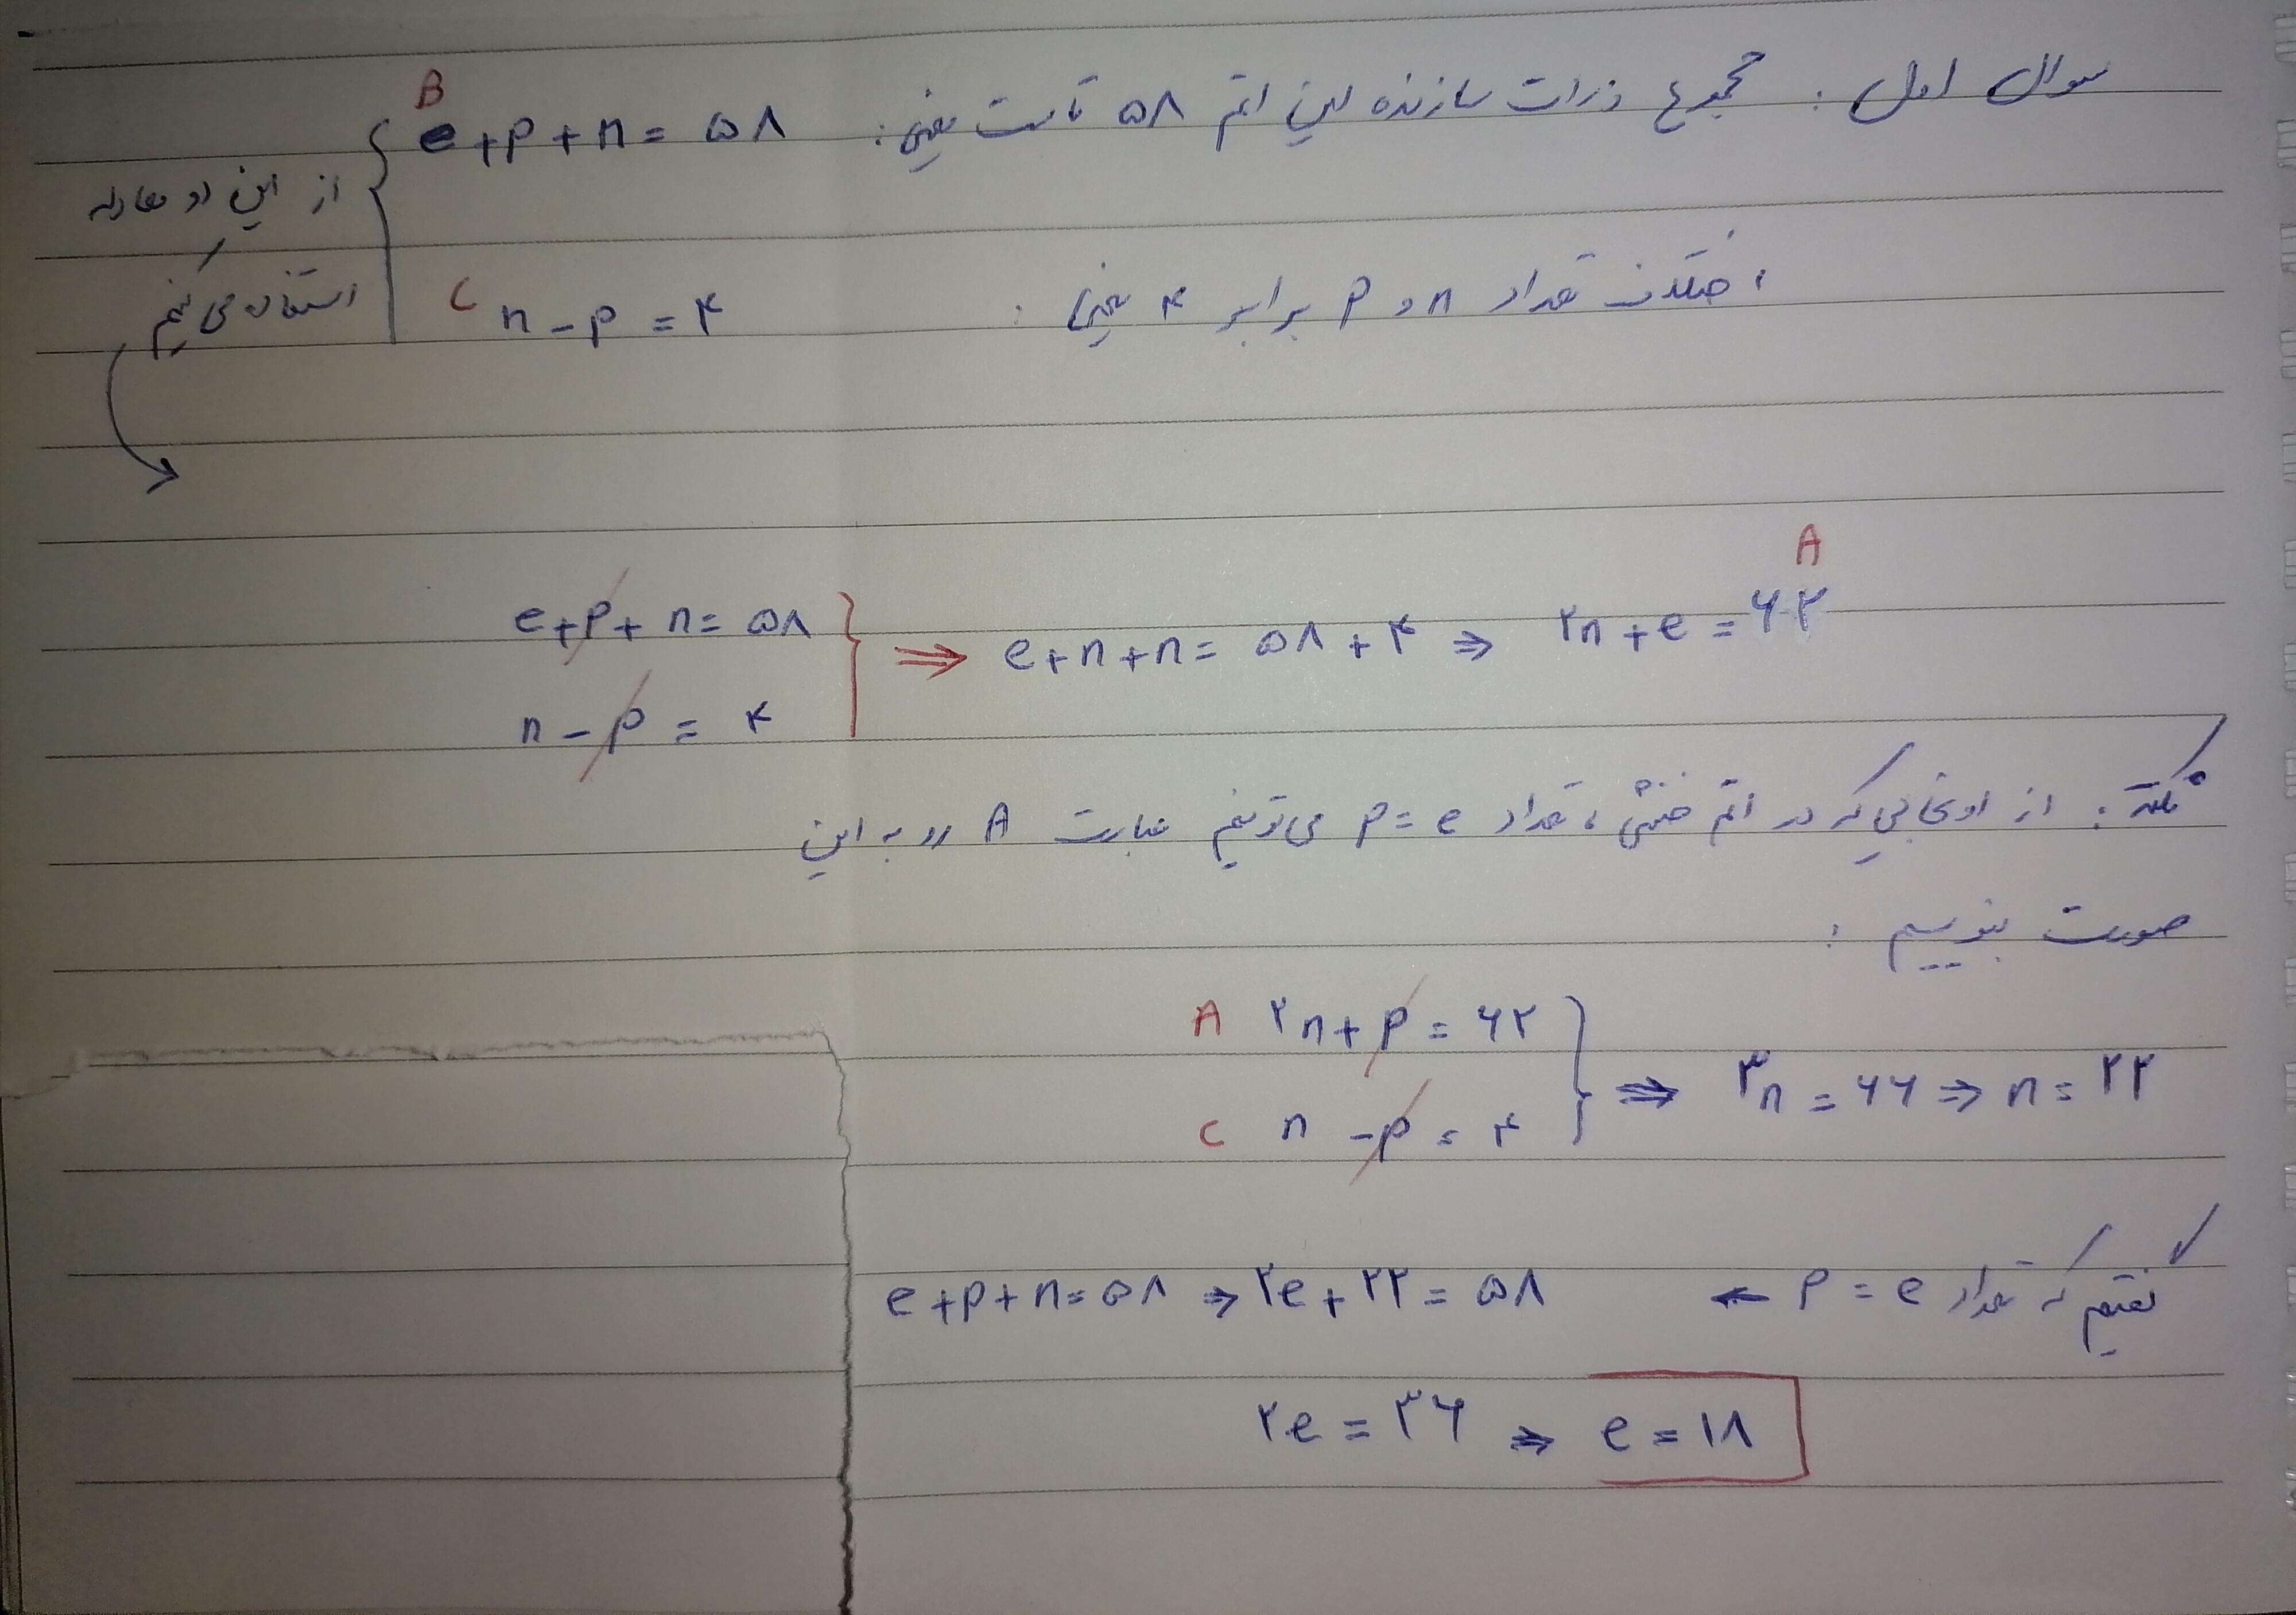 سوال اول : مجموع ذرات سازنده این اتم ۵۸ تاست یعنی :
B
e+p+n = ۵۸
از این دو معادله
استفاده می‌کنیم
اختلاف تعداد n و p برابر ۴ یعنی :
C n-p = ۴
e+p+n = ۵۸
n-p = ۴
⇒ e+n+n = ۵۸+۴ ⇒ ۲n+e = ۶۲
A
نکته : از اونجایی که در اتم خنثی ، تعداد p = e می‌تونیم عبارت A رو به این
صورت بنویسیم :
A ۲n+p = ۶۲
C n-p = ۴
⇒ ۳n = ۶۶ ⇒ n = ۲۲
گفتیم که تعداد p = e ←
e+p+n = ۵۸ ⇒ ۲e+۲۲ = ۵۸
۲e = ۳۶ ⇒ e = ۱۸